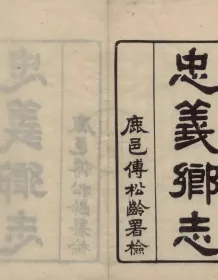 忠義鄉志
鹿邑傅松齡署檢